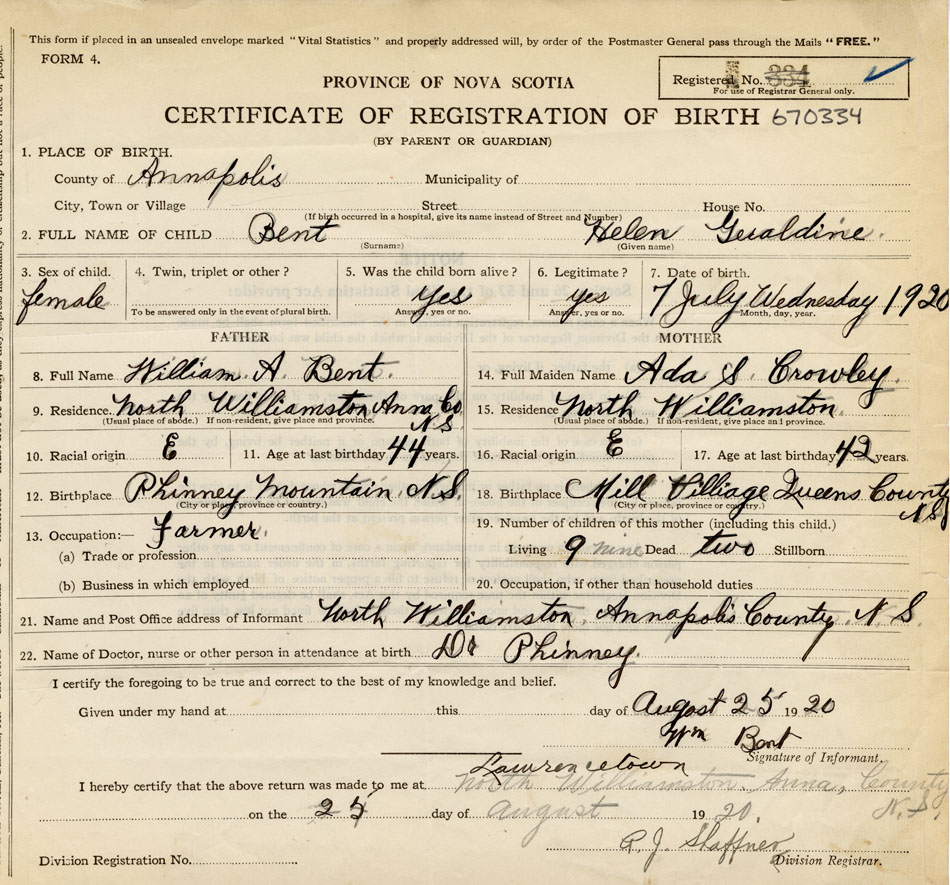 This form if placed in an unsealed envelope marked "Vital Statistics" and properly addressed will, by order of the Postmaster General pass through the Mails "FREE."
FORM 4.
Registered No. 334
For use of Registrar General only.
PROVINCE OF NOVA SCOTIA
CERTIFICATE OF REGISTRATION OF BIRTH 670334
(BY PARENT OR GUARDIAN)
1. PLACE OF BIRTH.
County of Annapolis Municipality of
City, Town or Village Street House No.
(If birth occurred in a hospital, give its name instead of Street and Number)
2. FULL NAME OF CHILD Bent Helen Geraldine.
(Surname) (Given name)
3. Sex of child. 4. Twin, triplet or other? 5. Was the child born alive? 6. Legitimate? 7. Date of birth.
female Yes yes 7 July Wednesday 1920
To be answered only in the event of plural birth. Answer, yes or no. Answer, yes or no. Month, day, year.
FATHER MOTHER
8. Full Name William. A. Bent. 14. Full Maiden Name Ada S. Crowley.
9. Residence. North Williamston Anna Co N.S. 15. Residence North Williamston.
(Usual place of abode.) If non-resident, give place and province. (Usual place of abode.) If non-resident, give place and province.
10. Racial origin E 11. Age at last birthday 44 years. 16. Racial origin E 17. Age at last birthday 42 years.
12. Birthplace Phinney Mountain. N.S. 18. Birthplace Mill Villiage Queens County N.S.
(City or place, province or country.) (City or place, province or country.)
13. Occupation:— Farmer. 19. Number of children of this mother (including this child.)
(a) Trade or profession Living 9 nine Dead two Stillborn
(b) Business in which employed 20. Occupation, if other than household duties
21. Name and Post Office address of Informant North Williamston, Annapolis County, N. S.
22. Name of Doctor, nurse or other person in attendance at birth Dr Phinney.
I certify the foregoing to be true and correct to the best of my knowledge and belief.
Given under my hand at this day of August 25 1920
Wm Bent
Signature of Informant.
Lawrencetown
I hereby certify that the above return was made to me at North Williamston. Anna, County N.S.
on the 25 day of August 1920.
Division Registration No. Division Registrar.